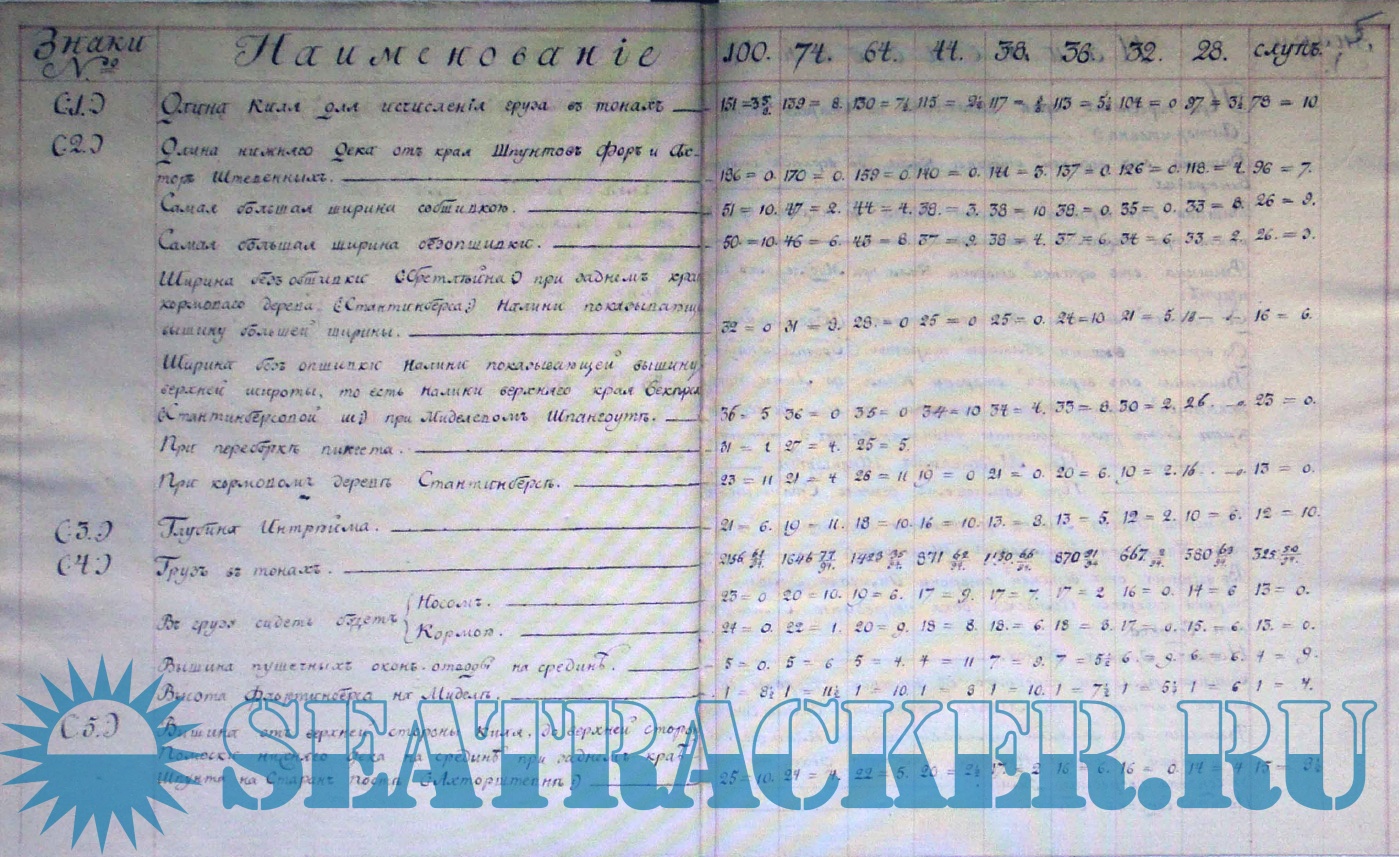 Знаки Наименованіе 100. 74. 64. 44. 38. 36. 32. 28. слупъ.
№
(:1.) Длина Киля для исчисленія груза въ тонахъ 151 = 3 139 = 8. 130 = 7½ 115 = 2½ 117 = ½ 113 = 5½ 104 = 0 97 = 3½ 78 = 10
(:2.) Длина нижняго Дека отъ края Шпунтовъ Форъ и Ах-
торъ Штевенныхъ. 186 = 0. 170 = 0. 159 = 0 140 = 0. 141 = 3. 137 = 0. 126 = 0. 118 = 4. 96 = 7.
Самая большая ширина собшивкою. 51 = 10. 47 = 2. 44 = 4. 38. = 3. 38 = 10 38. = 0. 35 = 0. 33 = 8. 26 = 9.
Самая большая ширина безопшивки. 50 = 10. 46 = 6. 43 = 8 37 = 9. 38 = 4. 37 = 6. 34 = 6 33 = 2. 26. = 3.
Ширина безъ обшивки при заднемъ краѣ
кормоваго дерева (Стантинберса:) Налини показывающ
вышину большей ширины. 32 = 0 31 = 9. 29. = 0 25 = 0 25 = 0. 24 = 10 21 = 5. 18 16 = 6.
Ширина безъ опшивки налини показывающей вышину
верхней широты, то есть налини верхняго края
при Миделевомъ Шпангоутѣ. 36 = 5 36 = 0 35 = 0 34 = 10 34 = 4. 33 = 8. 30 = 2. 26. 23 = 0.
При переборкѣ пикета. 31 = 1 27 = 4. 25 = 5.
При кормовомъ деревѣ Стантинберсъ. 23 = 11 21 = 4 26 = 11 19 = 0 21 = 0. 20 = 6. 10 = 2. 16 13 = 0.
(:3.) Глубина Интрюма. 21 = 6. 19 = 11. 18 = 10. 16 = 10. 13. = 8. 13 = 5. 12 = 2. 10 = 6. 12 = 10.
(:4.) Грузъ въ тонахъ. 2156 1646 1423 871 1130 870 667 580 325
Въ грузѣ сидеть будетъ Носомъ. 23 = 0 20 = 10. 19 = 6. 17 = 9. 17 = 7. 17 = 2 16 = 0. 14 = 6 13 = 0.
Кормою. 24 = 0. 22 = 1. 20 = 9. 18 = 8. 18. = 6. 18 = 8. 17 = 0. 15. = 6. 13. = 0.
Вышина пушечныхъ оконъ отводы на срединѣ. 5 = 0. 5 = 6 5 = 4. 4 = 11 7 = 9. 7 = 5½ 6. = 9. 6. = 6. 4 = 9.
Высота на Миделѣ. 1 = 8½ 1 = 11½ 1 = 10. 1 = 8 1 = 10. 1 = 7½ 1 = 5½ 1 = 6 1 = 4.
(:5.) Вышина отъ верхней стороны Киля, до верхней сторо
нижняго дека на срединѣ при заднемъ краѣ
Шпунта на Старнъ поста (:Ахторштевнъ) 25 = 10. 24 = 4. 22 = 5. 20 = 2½ 17. = 2 16 = 6. 16 = 0. 14 = 4 15 = 9½
SEATRACKER.RU